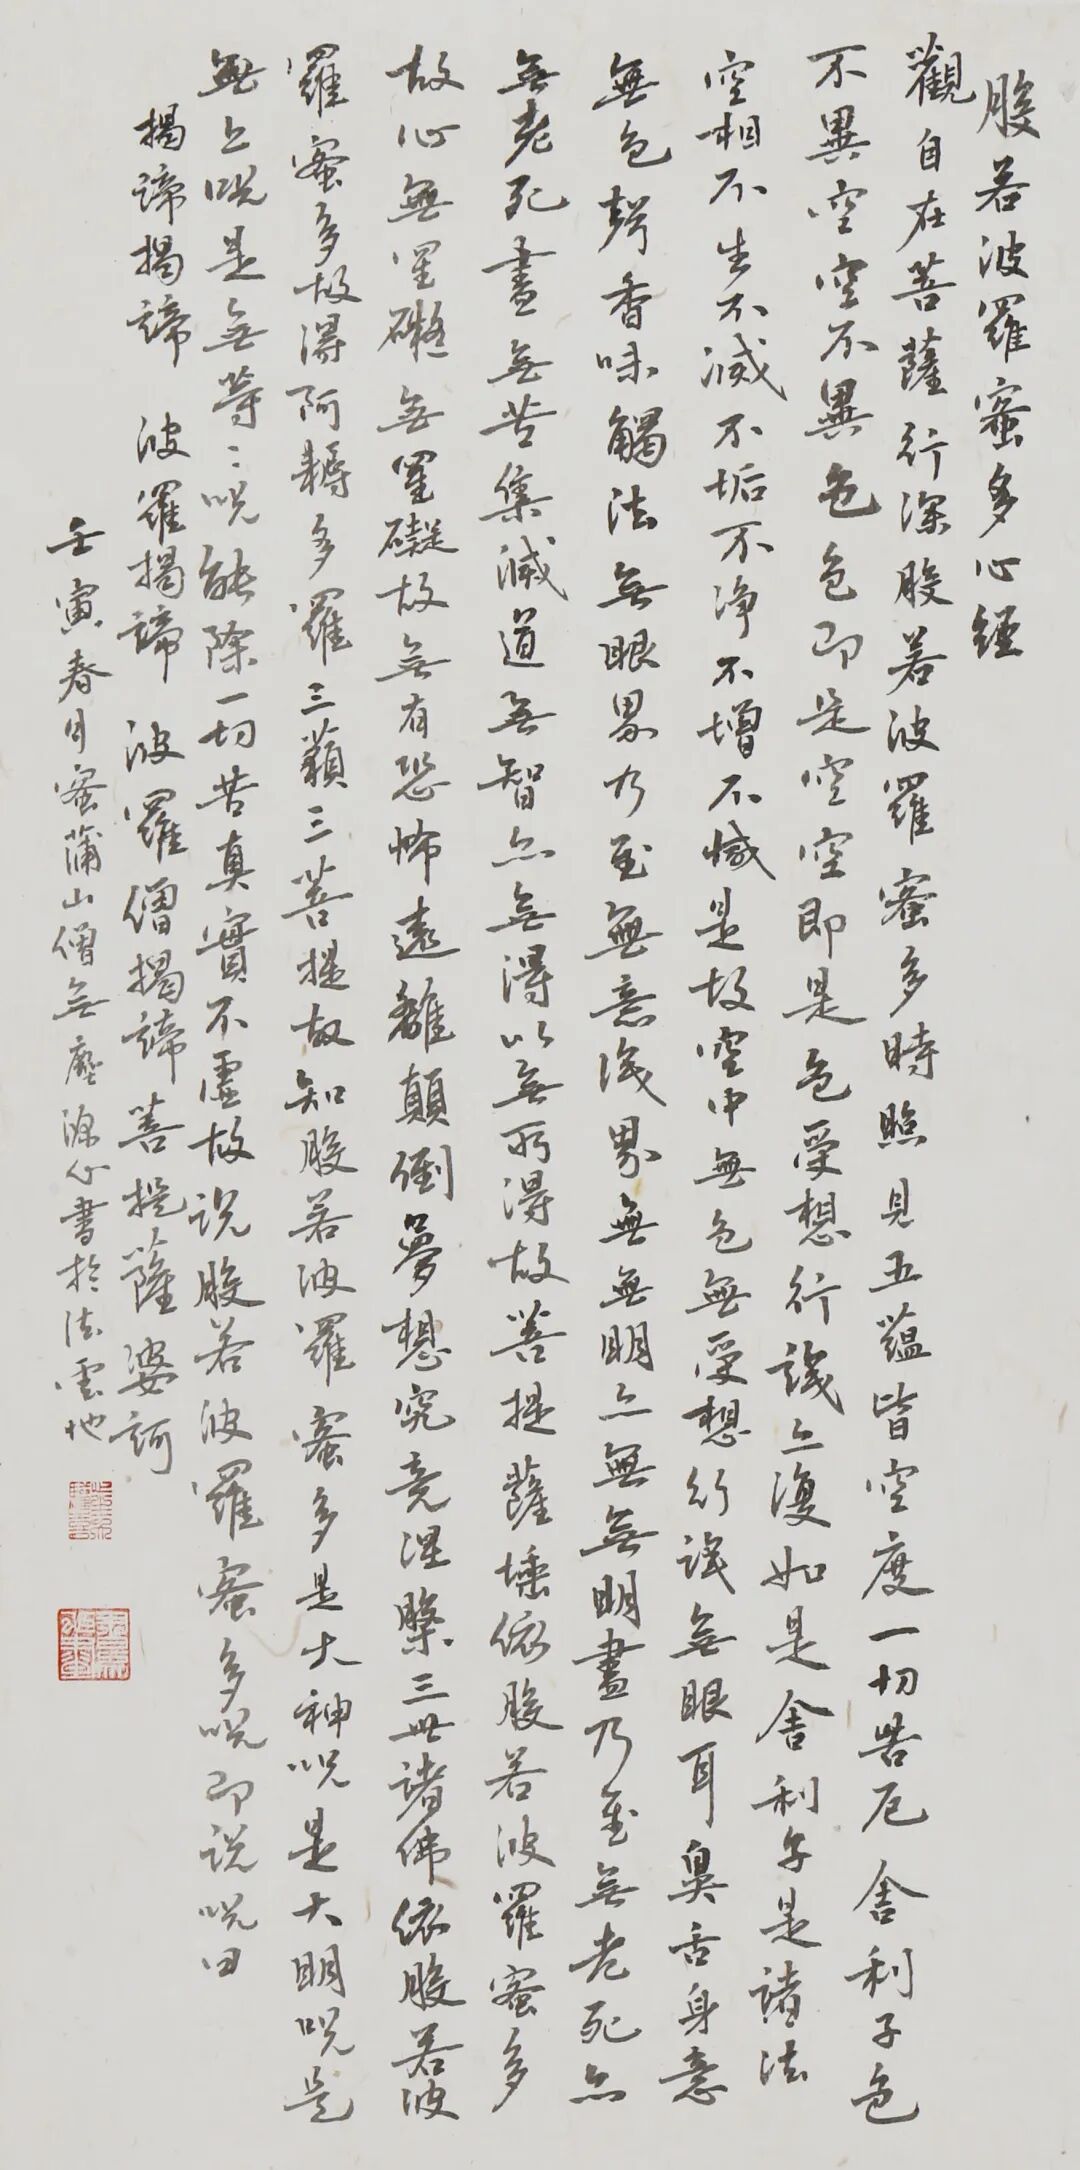 般若波羅蜜多心經
觀自在菩薩行深般若波羅蜜多時照見五蘊皆空度一切苦厄舍利子色
不異空空不異色色即是空空即是色受想行識亦復如是舍利子是諸法
空相不生不滅不垢不净不增不減是故空中無色無受想行識無眼耳鼻舌身意
無色聲香味觸法無眼界乃至無意識界無無明亦無無明盡乃至無老死亦
無老死盡無苦集滅道無智亦無得以無所得故菩提薩埵依般若波羅蜜多
故心無罣礙無罣礙故無有恐怖遠離顛倒夢想究竟涅槃三世諸佛依般若波
羅蜜多故得阿耨多羅三藐三菩提故知般若波羅蜜多是大神呪是大明呪是
無上呪是無等〻呪能除一切苦真實不虛故説般若波羅蜜多呪即説呪曰
揭諦揭諦 波羅揭諦 波羅僧揭諦菩提薩婆訶
壬寅春月蜜蒲山僧無塵源心書於法雲地